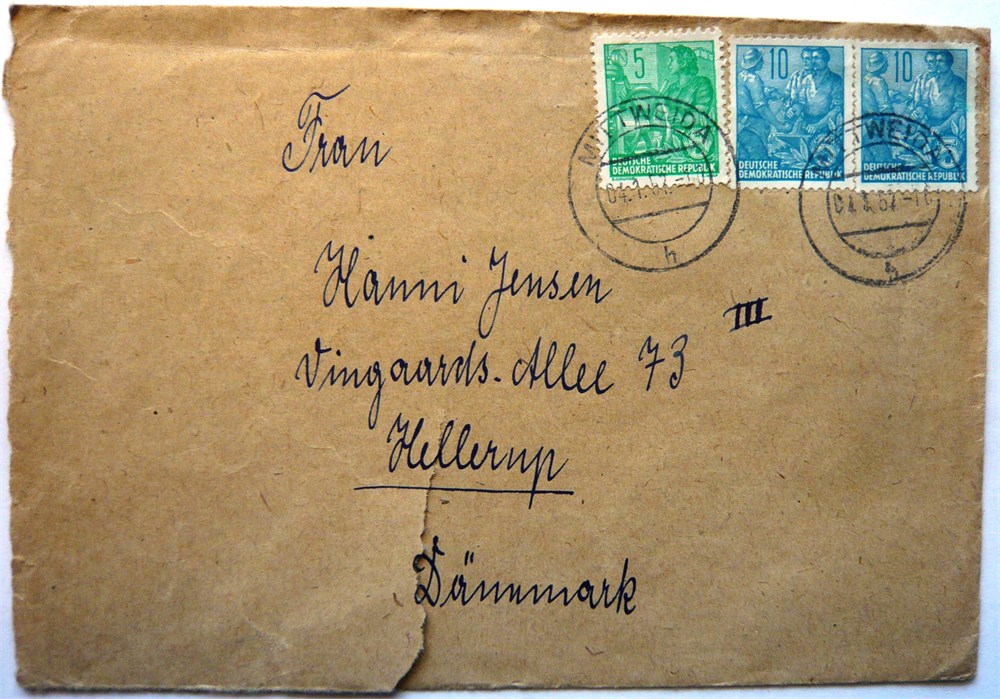 Frau
5
DEUTSCHE
DEMOKRATISCHE REPUBLIK
10
DEUTSCHE
DEMOKRATISCHE REPUBLIK
10
DEUTSCHE
DEMOKRATISCHE REPUBLIK
MITTWEIDA
h
MITTWEIDA
h
Hanni Jensen
Vingaards-Allee 73 III
Hellerup
Dänmark